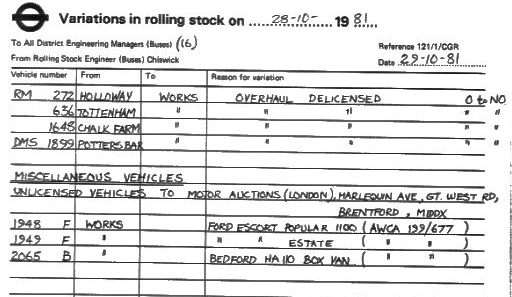 Variations in rolling stock on 28-10- 1981
To All District Engineering Managers (Buses) (16)
Reference 121/1/CGR
From Rolling Stock Engineer (Buses) Chiswick
Date 29-10-81
Vehicle number From To Reason for variation
RM 272 HOLLOWAY WORKS OVERHAUL DELICENSED O to NO
636 TOTTENHAM " " " " "
1648 CHALK FARM " " " " "
DMS 1899 POTTERS BAR " " " " "
MISCELLANEOUS VEHICLES
UNLICENSED VEHICLES TO MOTOR AUCTIONS (LONDON), HARLEQUIN AVE, GT. WEST RD,
BRENTFORD, MIDDX
1948 F WORKS FORD ESCORT POPULAR 1100 (AWCA 199/677)
1949 F " " " ESTATE ( " " )
2065 B " BEDFORD HA 110 BOX VAN ( " " )